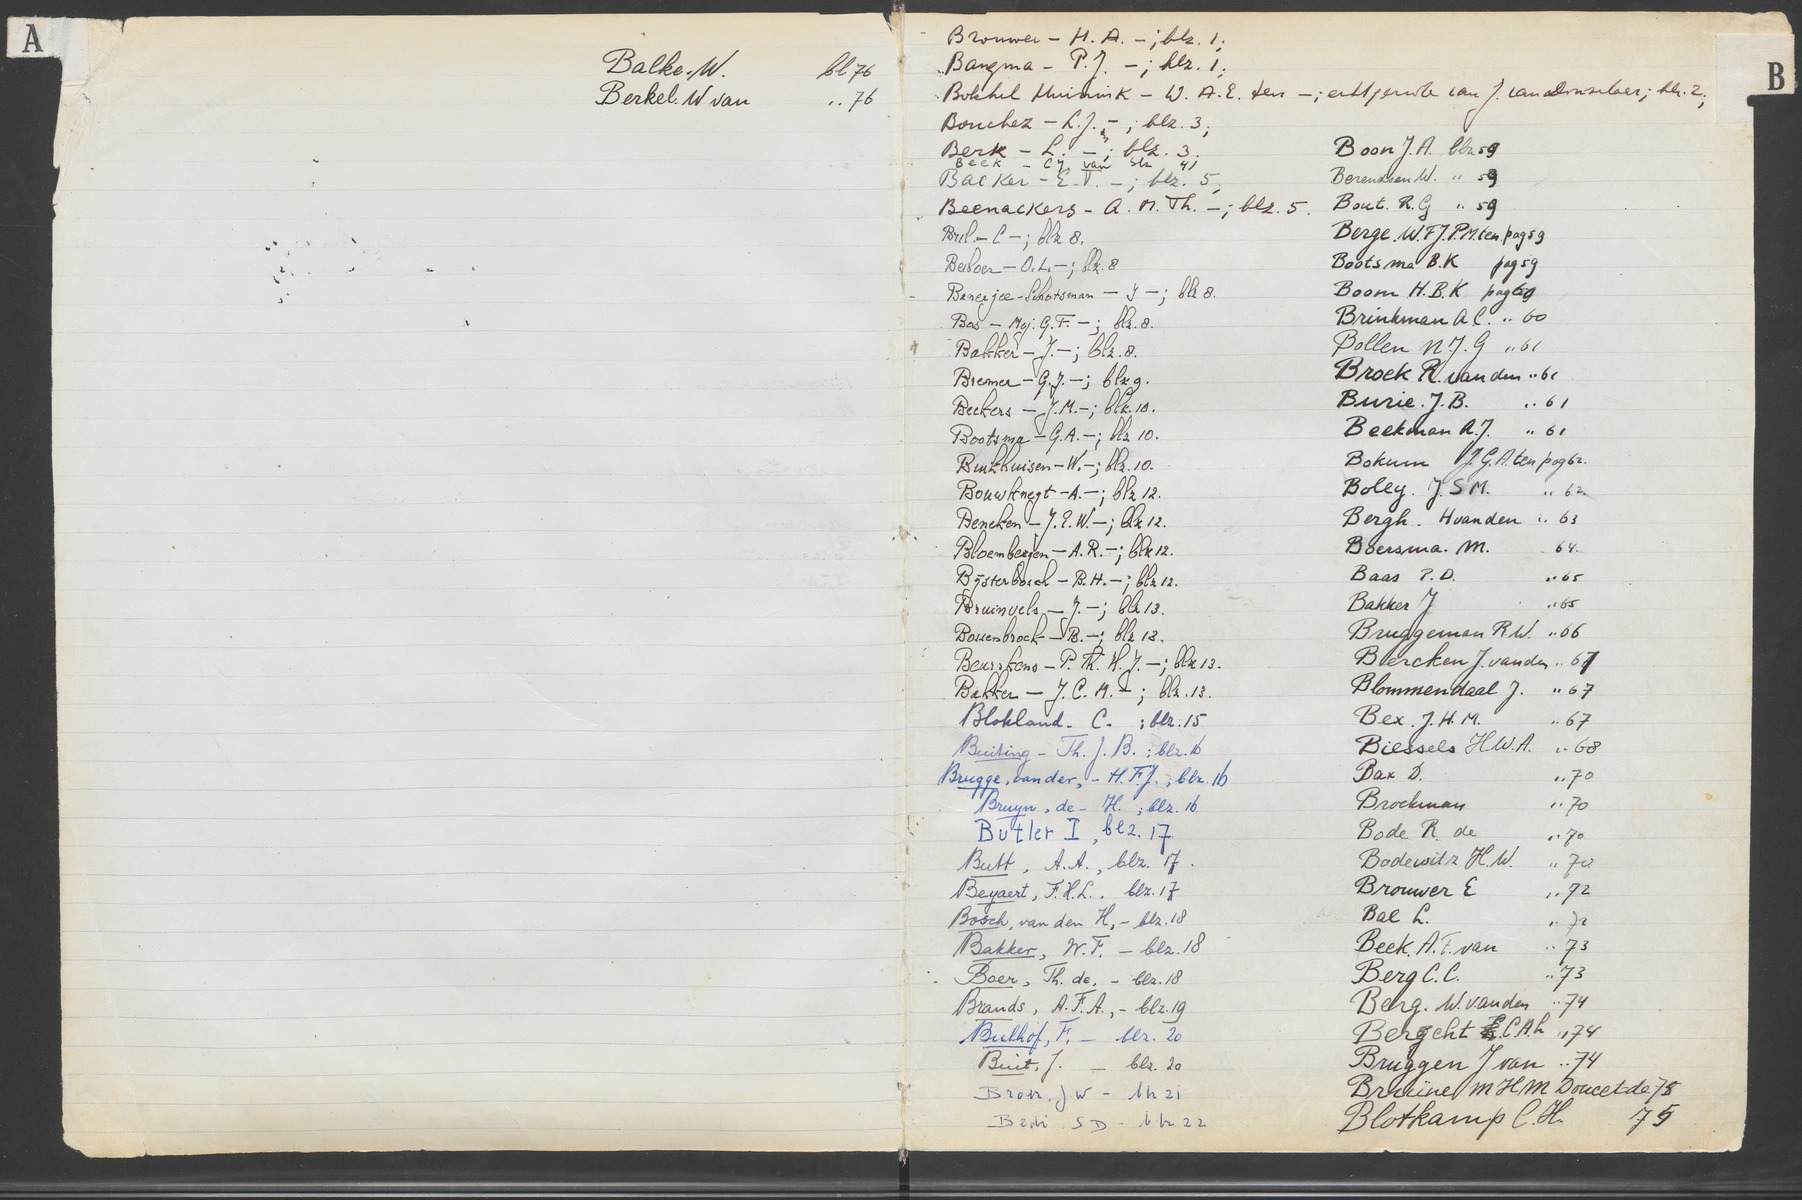 A
Balke. W. bl 76
Berkel. W van ,, 76
B
Brouwer - H. A. - ; blz. 1;
Bangma - P. J. - ; blz. 1;
Bokhel Huinink - W. A. E. ten - ; echtgenote van J. van Donselaer; blz. 2;
Bouchez - L. J. - ; blz. 3;
Berk - L. - ; blz. 3.
Beek - C J. van blz 41
Backer - E. T. - ; blz. 5;
Beenackers - A. M. Th. - ; blz. 5.
Bril - C - ; blz 8.
Berboer - O. L. - ; blz. 8
Banerjee-Schotsman - I - ; blz 8.
Bos - Mej. G. F. - ; blz. 8.
Bakker - J. - ; blz. 8.
Bremer - G. J. - ; blz 9.
Beckers - J. M. - ; blz. 10.
Bootsma - G. A. - ; blz 10.
Binkhuisen - W. - ; blz. 10.
Bouwknegt - A. - ; blz 12.
Beneken - J. E. W. - ; blz 12.
Bloembergen - A. R. - ; blz 12.
Bijsterbosch - B. H. - ; blz 12.
Bruinvels - J. - ; blz 13.
Bouenbrock - B. - ; blz 13.
Beurskens - P. Th. H. J. - ; blz 13.
Bakker - J. C. M. - ; blz. 13.
Blokland - C. ; blz. 15
Buiting - Th. J. B. ; blz. 16
Brugge, van der, - H. F. J. ; blz. 16
Bruyn, de - H. ; blz. 16
Butler I, blz. 17
Butt, A. A., blz. 17.
Beyaert, F. H. L., blz. 17
Bosch, van den H, - blz. 18
Bakker, W. F. - blz. 18
Boer, Th. de. - blz. 18
Brands, A. F. A., - blz. 19
Bulhof, F. - blz. 20
Buit, J. - blz. 20
J W - blz 21
S D - blz 22
Boon J. A. blz 59
Berendsen W. ,, 59
Bout. R. G ,, 59
Berge. W. F. J. P. M. ten pag 59
Bootsma B. K pag 59
Boom H. B. K pag 60
Brinkman A C. ,, 60
Bollen N. J. G ,, 61
Broek R. van den ,, 61
Burie. J. B. ,, 61
Beekman A. J. ,, 61
Bokum J. G. A. ten pag 62.
Boley. J. S M. ,, 62
Bergh. H van den ,, 63
Boersma. M. 64.
Baas P. D. ,, 65
Bakker J ,, 65
Bruggeman R W. ,, 66
Biercken J. van den ,, 67
Blommendaal J. ,, 67
Bex. J. H. M. ,, 67
Biessels H. W. A. ,, 68
Bax D. ,, 70
Brockman ,, 70
Bode R de ,, 70
Bodewitz H. W. ,, 72
Brouwer E ,, 72
Bal L. ,, 72
Beek. A. F. van ,, 73
Berg C. C. ,, 73
Berg. W. van den ,, 74
Bergcht C A L ,, 74
Bruggen J van ,, 74
Bruïne M H M Doucet de 75
Blotkamp C. H. 75